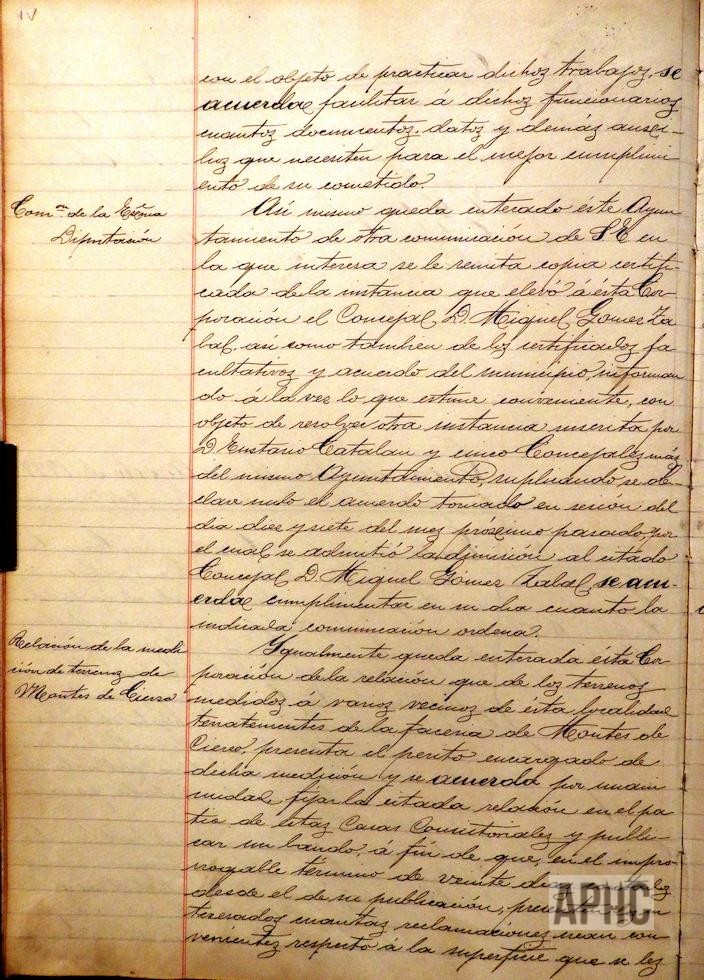 con el objeto de practicar dichos trabajos, se
acuerda facilitar á dichos funcionarios
cuantos documentos, datos y demás auxi-
lios que necesiten para el mejor cumplimi
ento de su cometido.
Com.on de la Exma
Diputación
Así mismo queda enterado éste Ayun
tamiento de otra comunicación de S E en
la que interesa se le remita copia certifi-
cada de la instancia que elevó á ésta Cor
poración el Concejal D. Miguel Gómez Za
bal, asi como tambien de los certificados fa
cultativos y acuerdo del municipio, informan
do á la vez lo que estime conveniente, con
objeto de resolver otra instancia suscrita por
D Eustasio Catalan y cinco Concejales más
del mismo Ayuntamiento, suplicando se de-
clare nulo el acuerdo tomado en sesión del
dia diez y siete del mes próximo pasado, por
el cual se admitió la dimisión al citado
Concejal D. Miguel Gómez Zabal, se acu-
erda cumplimentar en su dia cuanto la
indicada comunicación ordena.
Relación de la medi
ción de terrenos de
Montes de Cierzo
Igualmente queda enterada ésta Cor
poración de la relación que de los terrenos
medidos á varios vecinos de ésta localidad
terratenientes de la facería de Montes de
Cierzo, presenta el perito encargado de
dicha medición y se acuerda por unani
midad fijar la citada relación en el pa
tio de estas Casas Consistoriales y publi-
car un bando, á fin de que, en el impro-
rrogable término de veinte dias
desde el de su publicación,
teresados cuantas reclamaciones crean con
venientes respecto á la superficie que se les
APHC